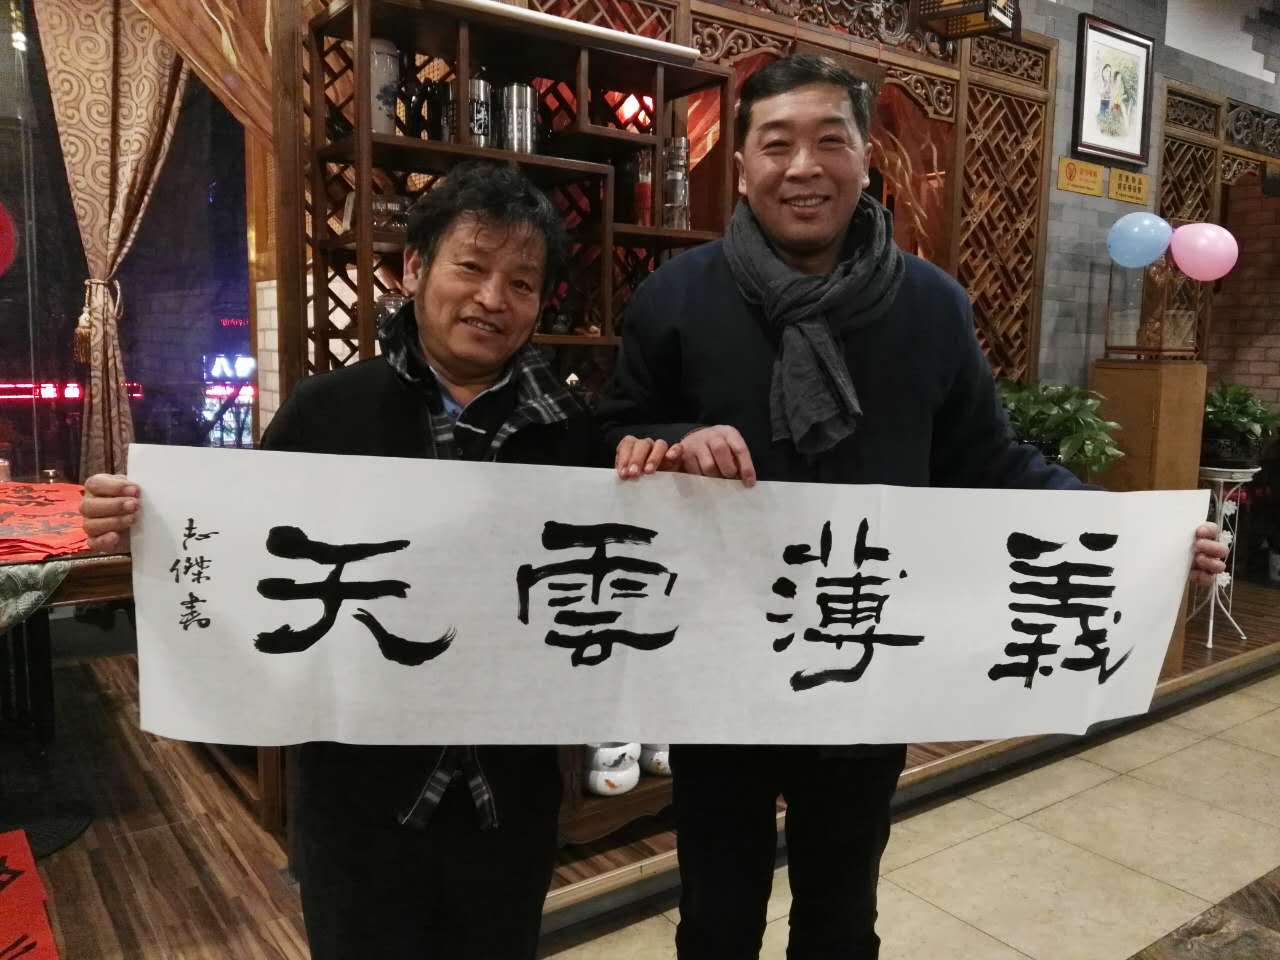 義薄雲天
志傑書